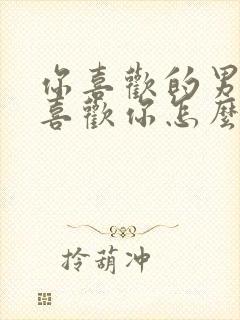 你喜歡的男
喜歡你怎麼
拎葫冲